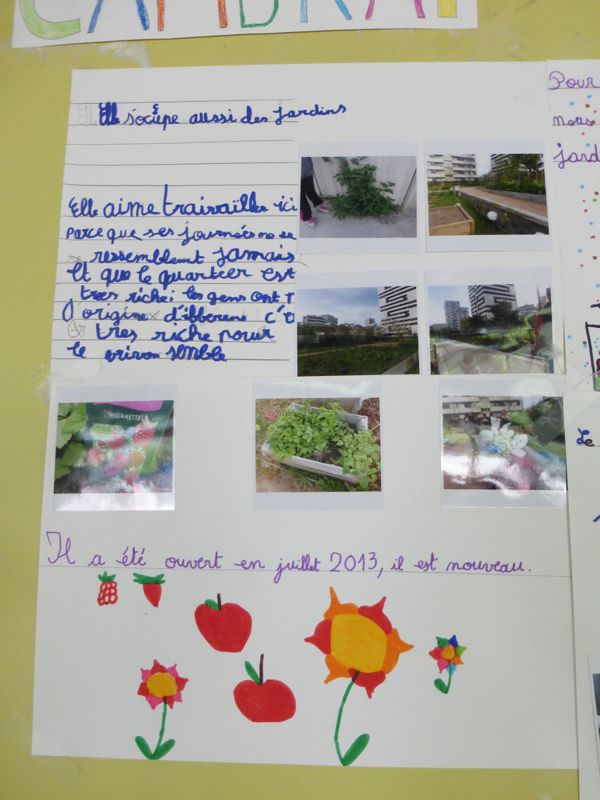 CAMBRAI
Elle s'ocupe aussi des jardins
Elle aime travailler ici
parce que ses journées ne se
ressemblent jamais
Et que le quartier est
tres riche; les gens ont
d'origine différent c'e
tres riche pour
le vivre
WILLAMETTE
Il a été ouvert en juillet 2013, il est nouveau.
Pour
nous
jard
Le